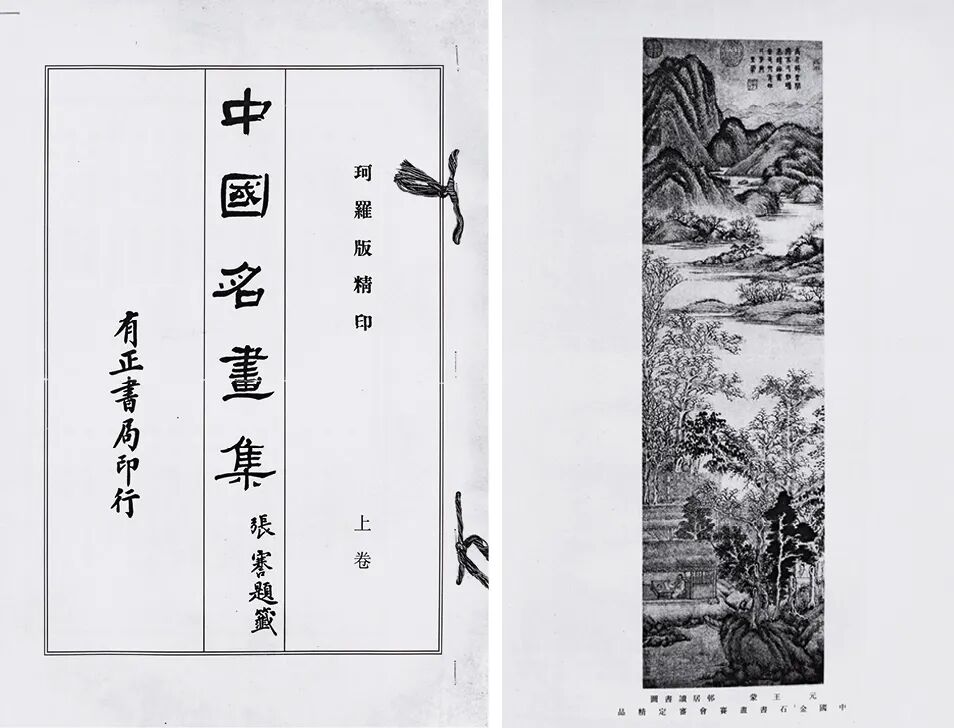 珂羅版精印
上卷
中國名畫集
張謇題籤
有正書局印行
元 王蒙 邨居讀書圖
中國金石書畫賽會審定精品